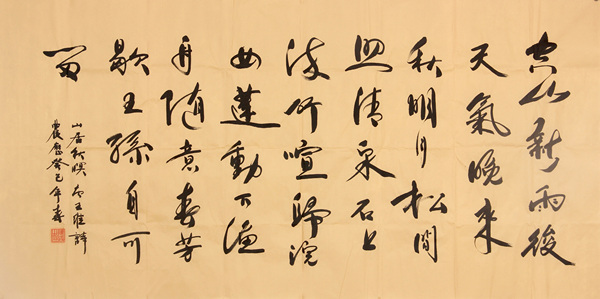 空山新雨後
天氣晚來
秋明月松間
照清泉石上
流竹喧歸浣
女蓮動下漁
舟隨意春芳
歇王孫自可
留
山居秋暝 王維詩
農歷癸巳年